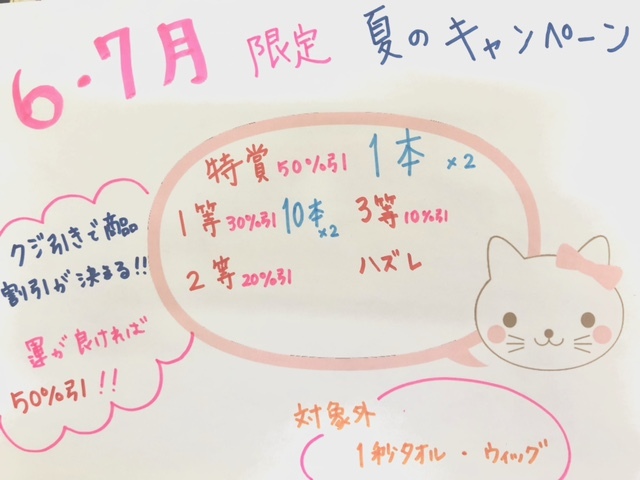 6・7月 限定 夏のキャンペーン
特賞 50%引 1本 ×2
1等 30%引 10本 ×2 3等 10%引
2等 20%引 ハズレ
クジ引きで商品
割引が決まる!!
運が良ければ
50%引!!
対象外
1秒タオル・ウィッグ